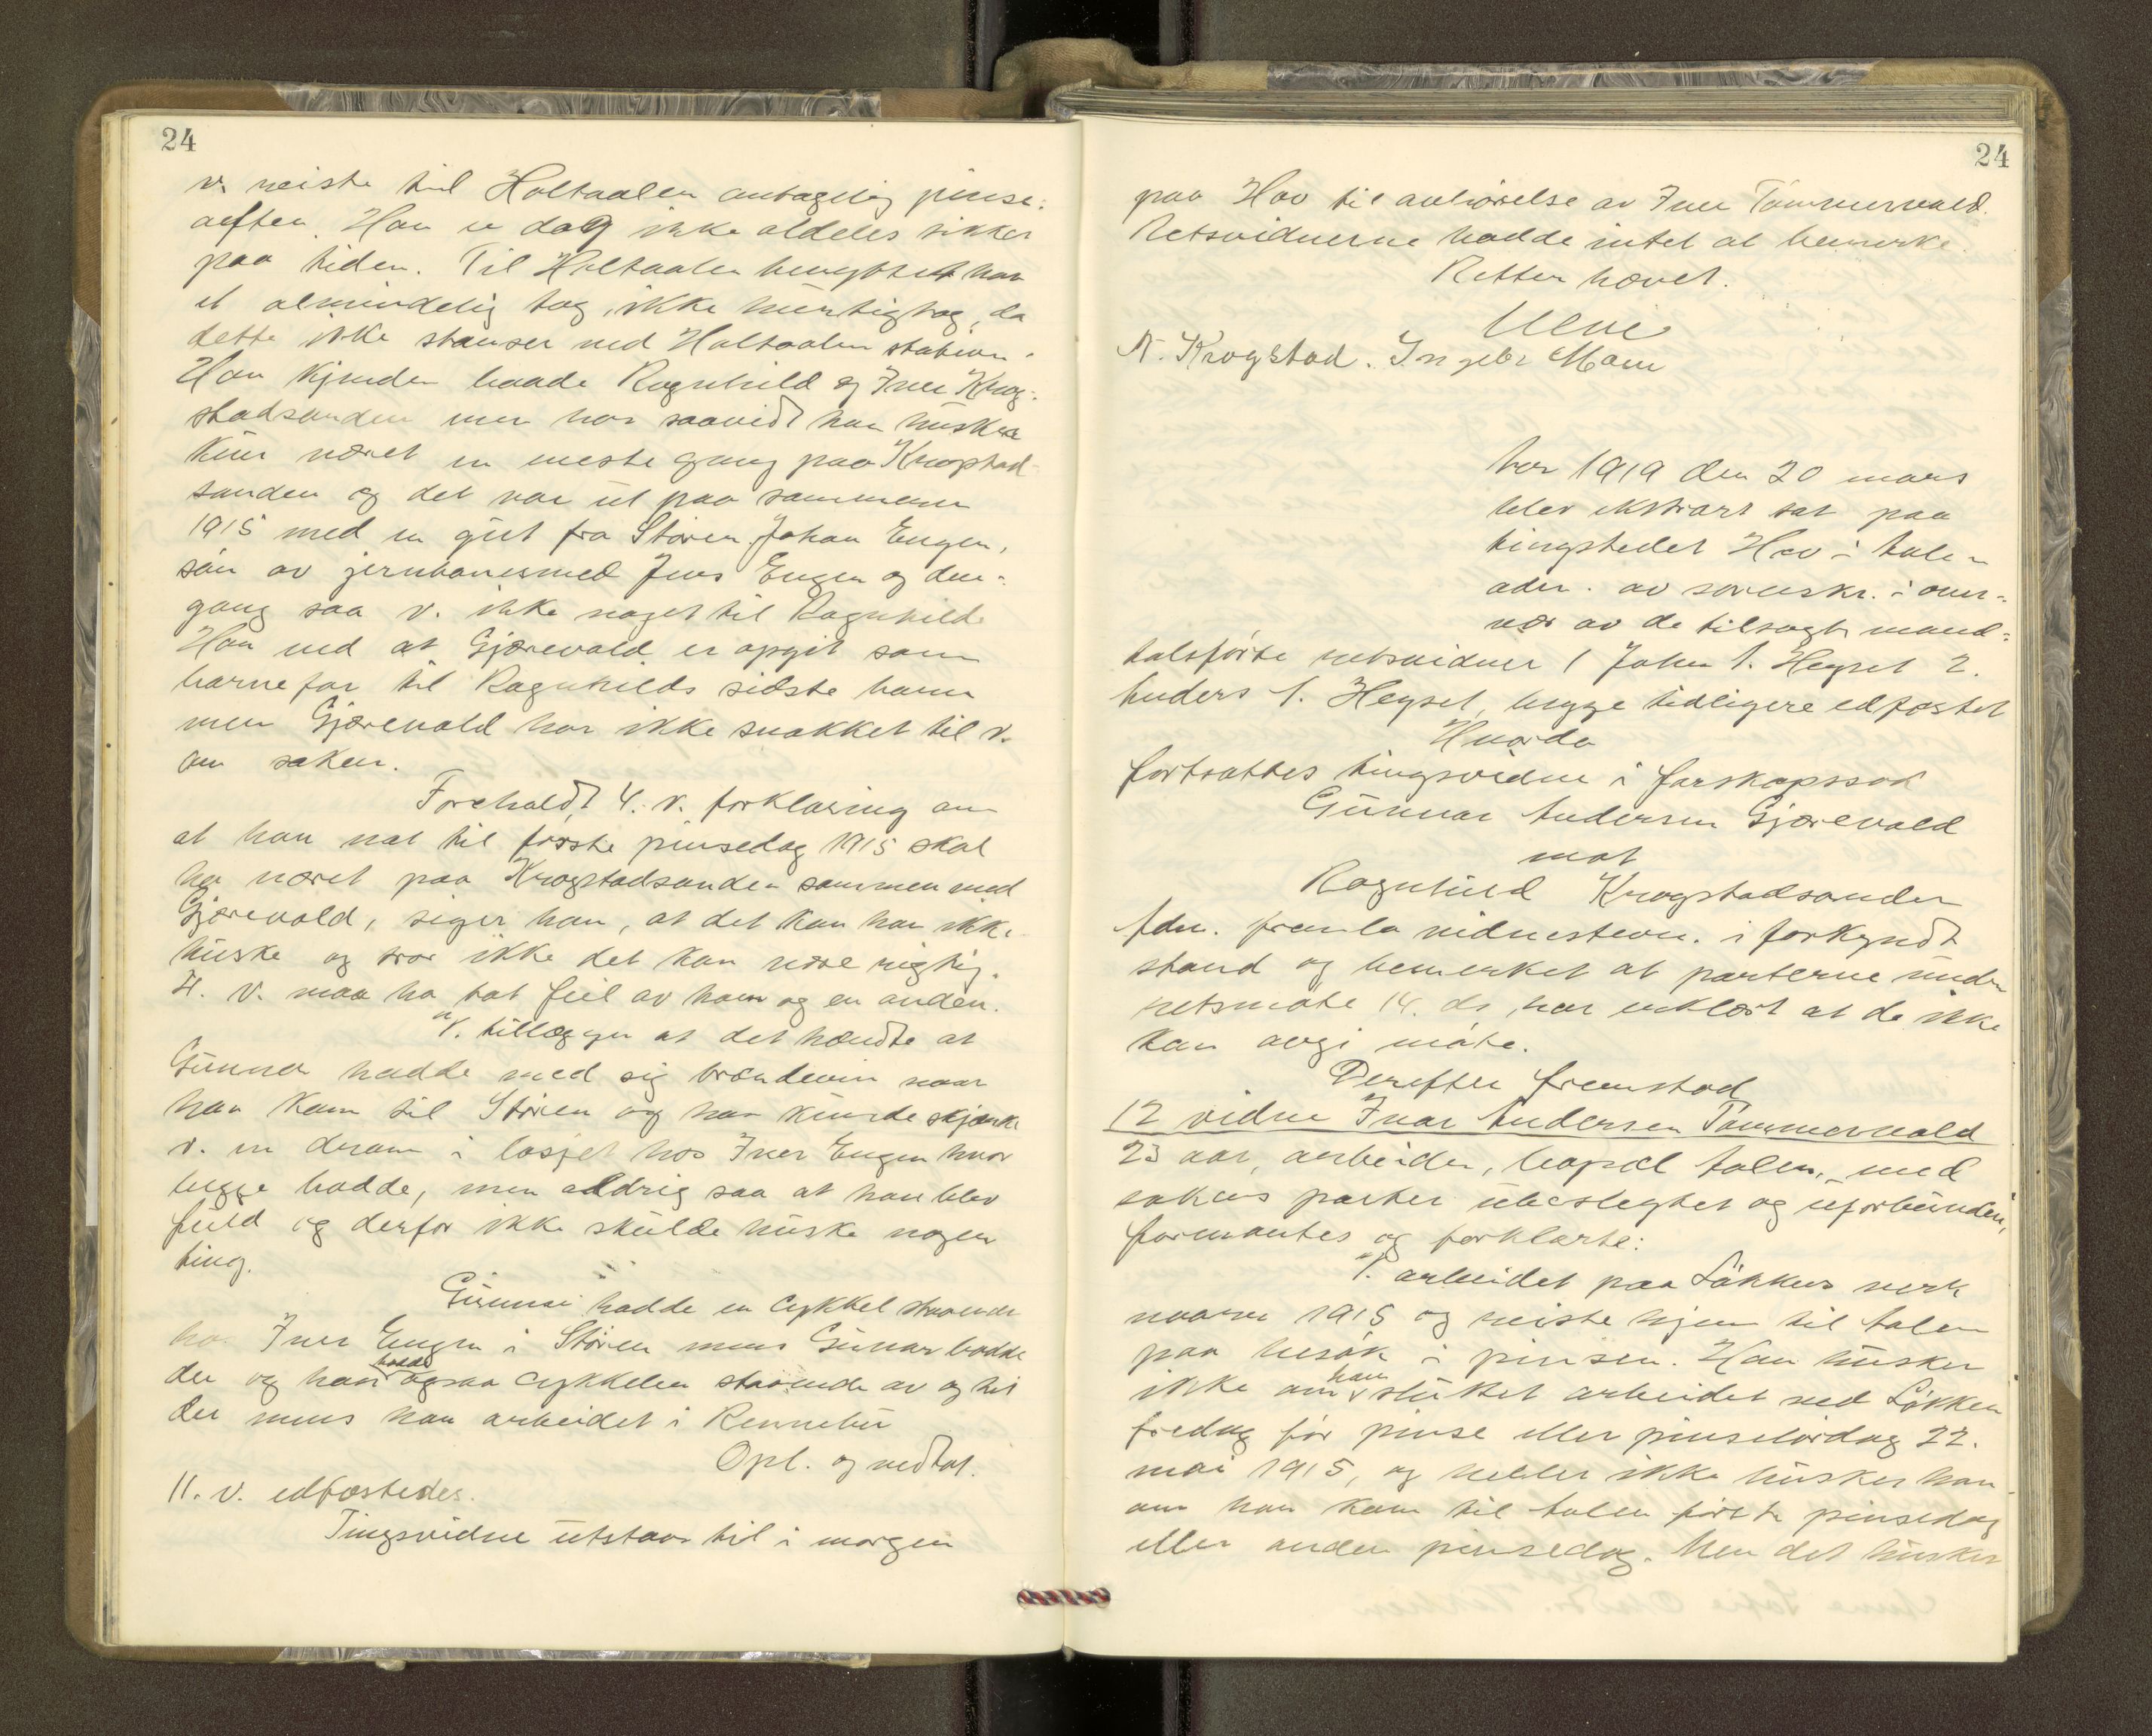 24
v. reiste til Holtaalen antagelig pinse-
aften. Han er dog ikke aldeles sikker
paa tiden. Til Holtaalen benyttet han
et almindelig tog, ikke hurtigtog, da
dette ikke stanser ved Holtaalen station.
Han kjender baade Ragnhild og Iver Krog-
stadsanden men har saavidt han husker
kun været en eneste gang paa Krogstad-
sanden og det var ut paa sommeren
1915 med en gut fra Støren, Johan Engen,
søn av jernbanesmed Jens Engen og den-
gang saa v. ikke noget til Ragnhild.
Han ved at Gjærevald er opgit som
barnefar til Ragnhilds sidste barn
men Gjærevald har ikke snakket til v.
om saken.
Foreholdt 4. v. forklaring om
at han nat til første pinsedag 1915 skal
ha været paa Krogstadsanden sammen med
Gjærevald, siger han, at det kan han ikke
huske og tror ikke det kan være rigtig.
4. v. maa ha tat feil av ham og en anden.
V. tillægger at det hændte at
Gunnar hadde med sig brændevin naar
han kom til Støren og han kunde skjænke
v. en dram i losjet hos Iver Engen hvor
begge bodde, men aldrig saa at han blev
fuld og derfor ikke skulde huske nogen
ting.
Gunnar hadde en cykkel staaende
hos Iver Engen i Støren mens Gunnar bodde
der og han hadde ogsaa cykkelen staaende av og til
der mens han arbeidet i Rennebu
Opl. og vedtat.
11. v. edfæstedes.
Tingsvidne utstaar til i morgen
24
paa Hov til avhørelse av Iver Tømmervald.
Retsvidnerne hadde intet at bemerke.
Retten hævet.
N. Krogstad. Ingebr Moen
Aar 1919 den 20 mars
blev ekstrart sat paa
tingstedet Hov i Aalen
adm. av sorenskr. i over-
vær av de tilsagte mand-
talsførte retsvidner 1 John A. Hegset 2.
Anders A. Hegset, begge tidligere edfæstet
Hvorda
fortsattes tingsvidne i farskapssak
Gunnar Andersen Gjærevald
mot
Ragnhild Krogstadsanden
Adm. fremla vidnestevn. i forkyndt
stand og bemerket at parterne under
retsmøte 14. ds. har erklært at de ikke
kan avgi møte.
Derefter fremstod
12 vidne Ivar Andersen Tømmervold
23 aar, arbeider, bopæl Aalen, med
sakens parter ubeslegtet og uforbunden,
formantes og forklarte:
V. arbeidet paa Løkkens verk
vaaren 1915 og reiste hjem til Aalen
paa besøk i pinsen. Han husker
ikke om han sluttet arbeidet ved Løkken
fredag før pinse eller pinselørdag 22.
mai 1915, og heller ikke husker han
om han kom til Aalen første pinsedag
eller anden pinsedag. Men det husker